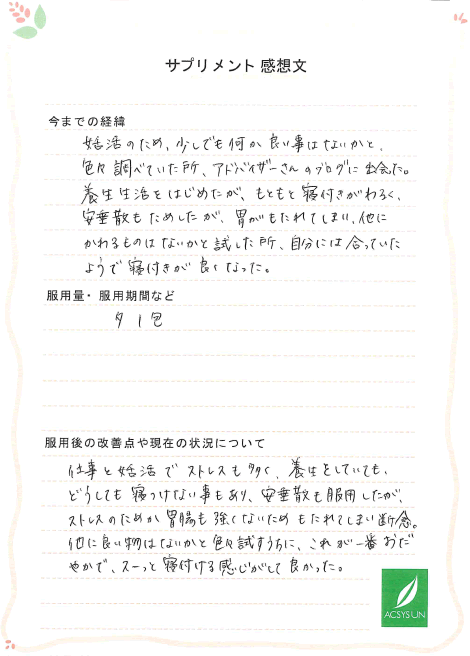 サプリメント 感想文
今までの経緯
妊活のため、少しでも何か良い事はないかと、
色々調べていた所、アドバイザーさんのブログに出会った。
養生生活をはじめたが、もともと寝付きがわるく、
安垂散もためしたが、胃がもたれてしまい、他に
かわるものはないかと試した所、自分には合っていた
ようで寝付きが良くなった。
服用量・服用期間など
夕1包
服用後の改善点や現在の状況について
仕事と妊活でストレスも多く、養生をしていても、
どうしても寝つけない事もあり、安垂散も服用したが、
ストレスのためか胃腸も強くないためもたれてしまい断念。
他に良い物はないかと色々試すうちに、これが一番おだ
やかで、スーっと寝付ける感じがして良かった。
ACSYSUN